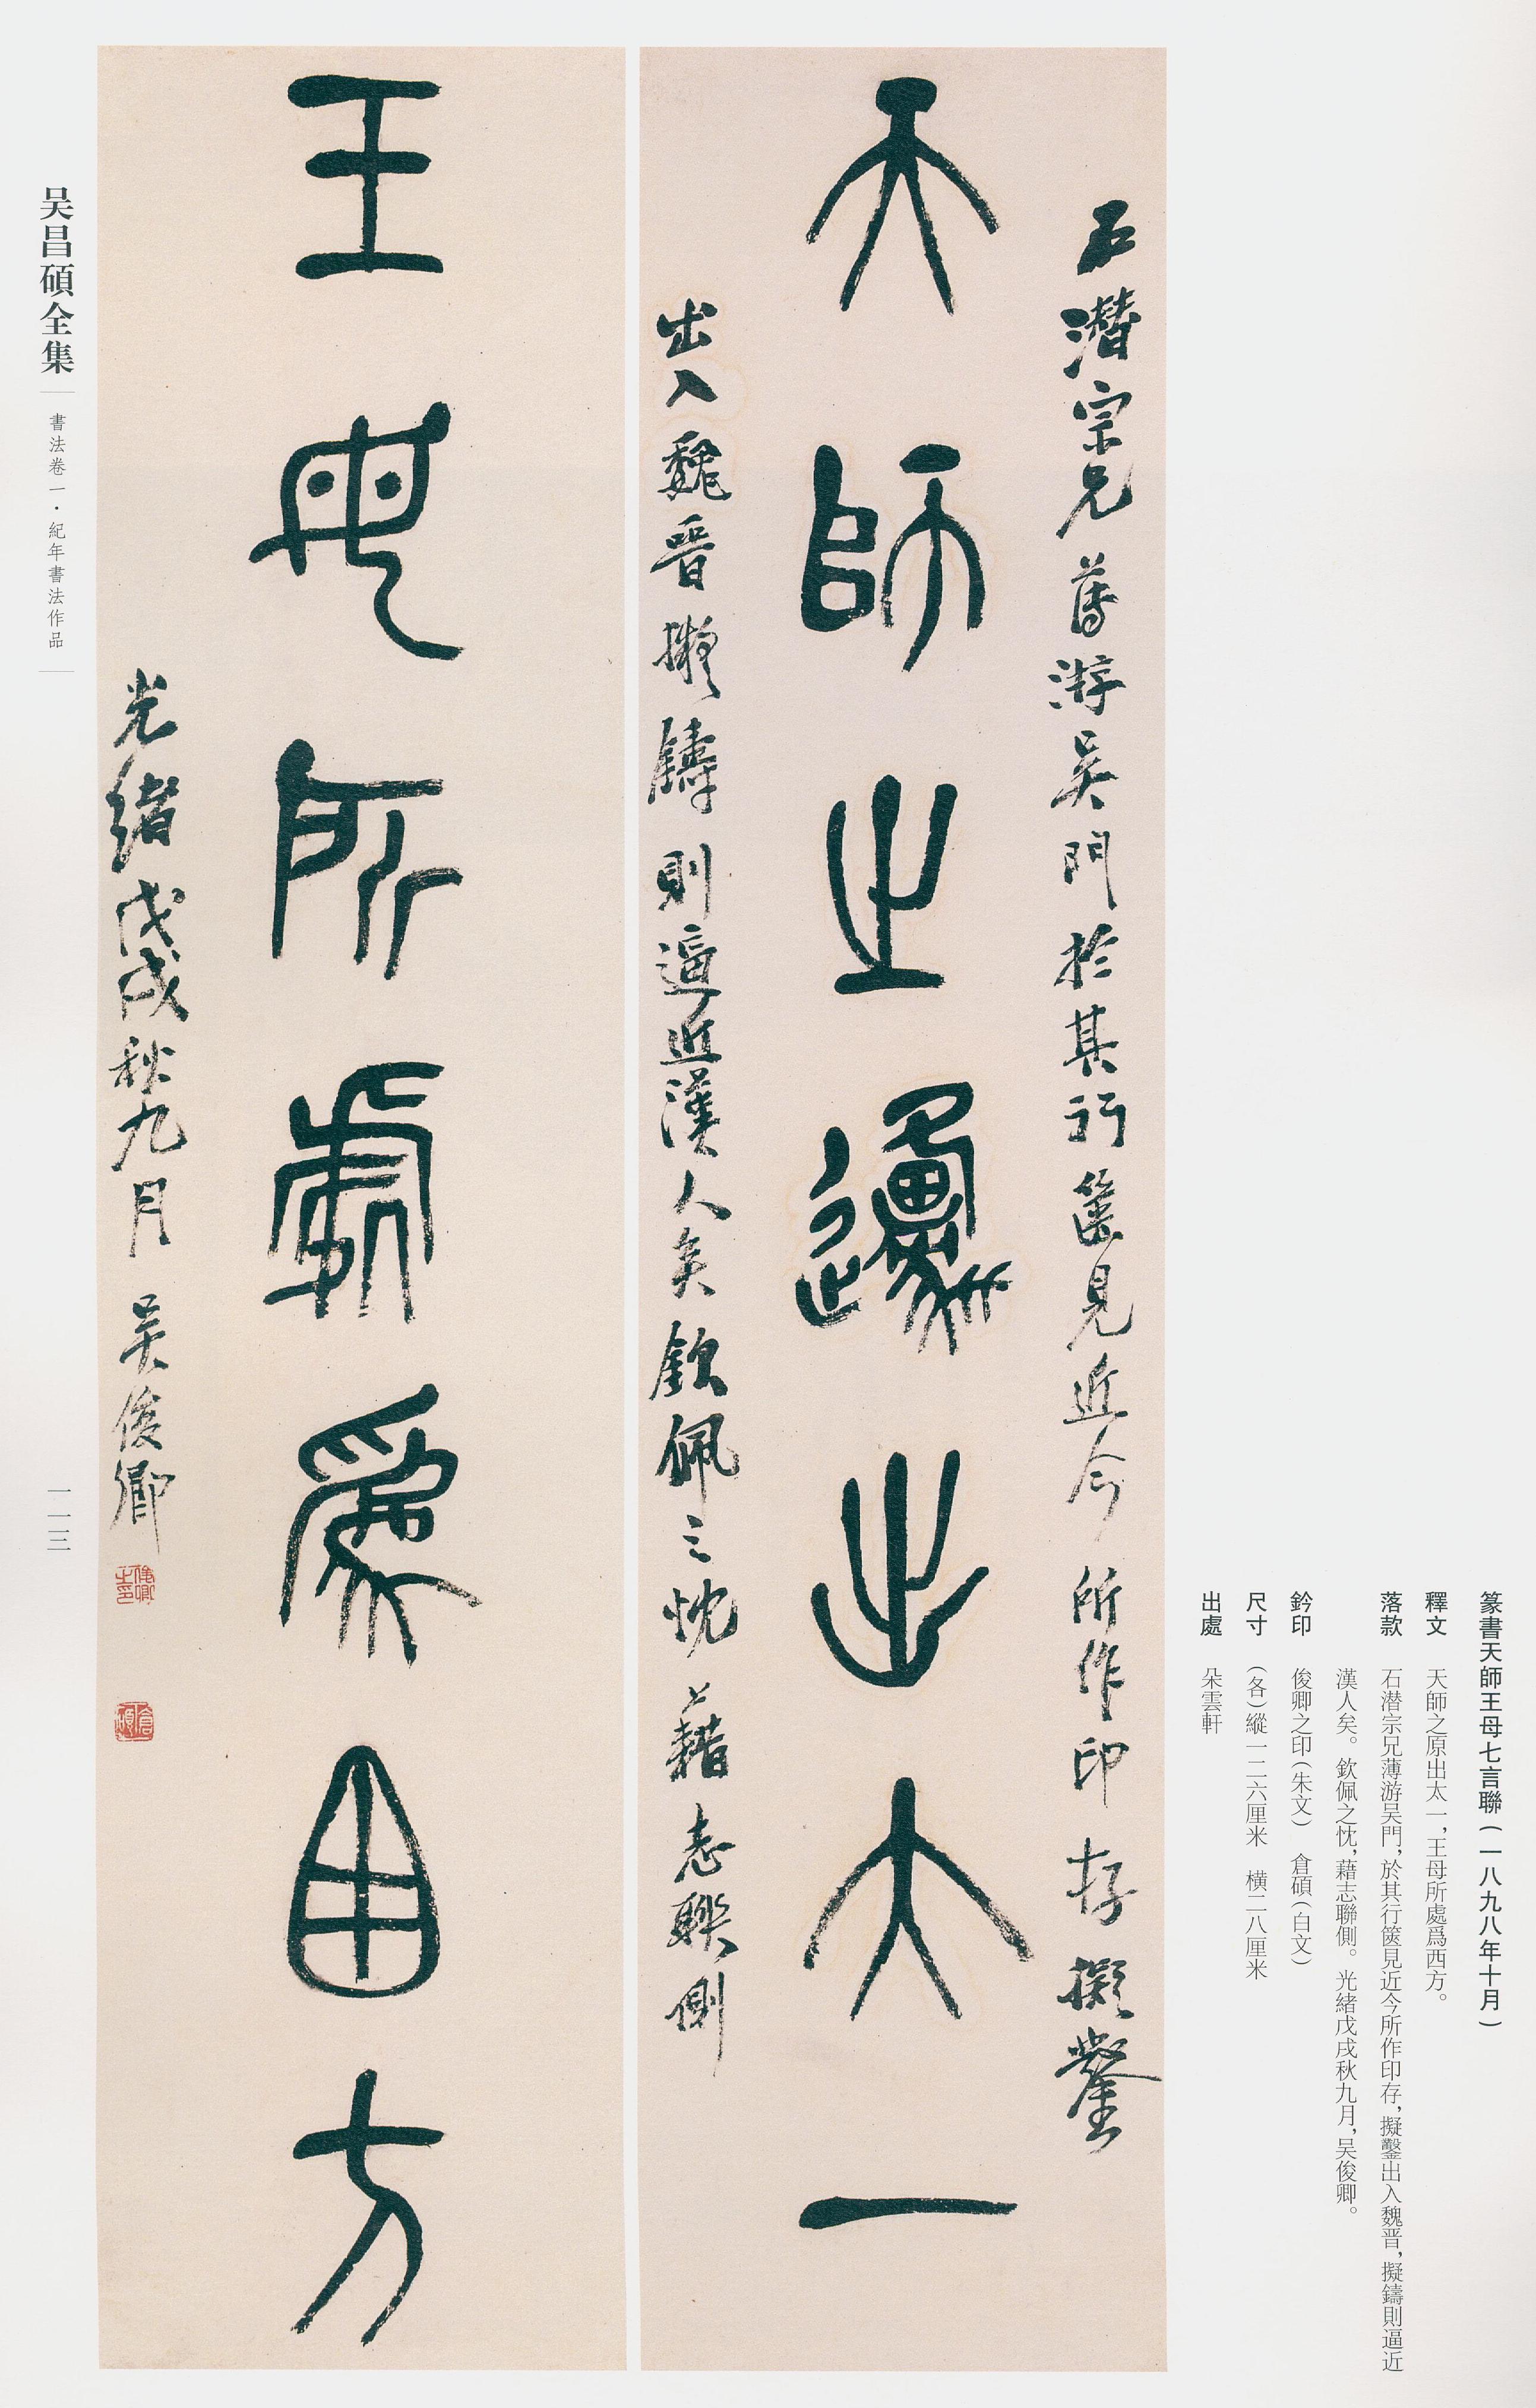 篆書天師王母七言聯(一八九八年十月)
釋文 天師之原出太一,王母所處爲西方。
落款 石潜宗兄薄游吴門,於其行篋見近今所作印存,擬鑿出入魏晋,擬鑄則逼近
漢人矣。欽佩之忱,藉志聯側。光緒戊戌秋九月,吴俊卿。
鈐印 俊卿之印(朱文) 倉碩(白文)
尺寸 (各)縱一二六厘米 橫二八厘米
出處 朵雲軒
石潛宗兄薄游吴門於其行篋見近今所作印存擬鑿
天師之邍出大一
出入魏晋擬鑄則逼近漢人矣欽佩之忱藉志聯側
王母所處爲西方
光緒戊戌秋九月吴俊卿
俊卿之印
倉碩
吴昌碩全集
書法卷一·紀年書法作品
一一三